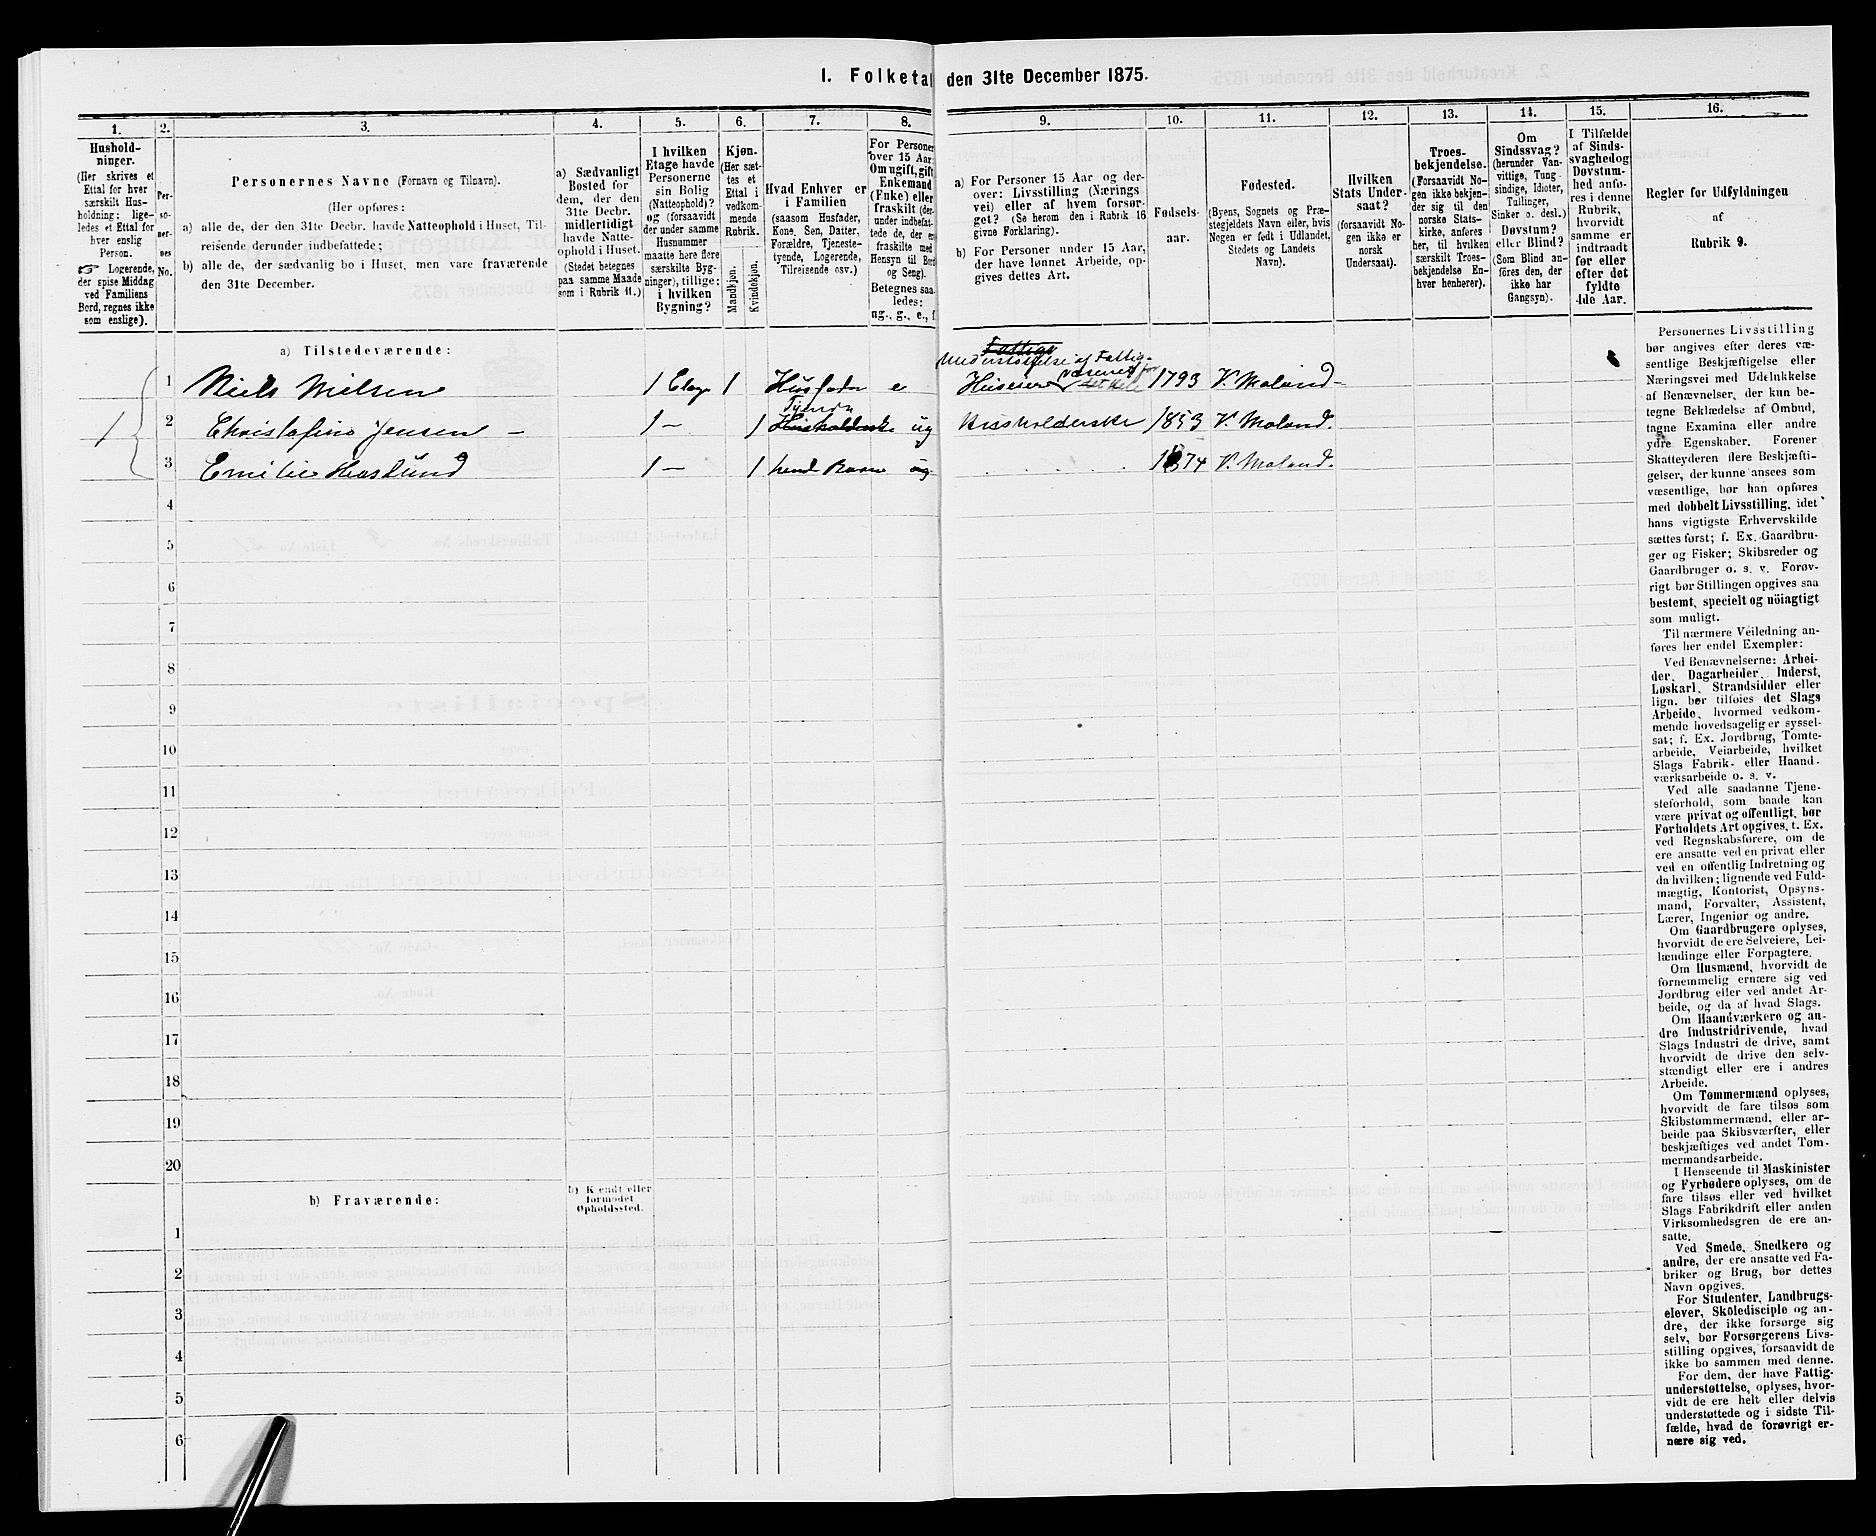 1. Folketal den 31te December 1875.
1.
Hushold-
ninger.
(Her skrives et
Ettal for hver
særskilt Hus-
holdning: lige-
ledes et Ettal for
hver enslig
Person.
☞ Logerende,
der spise Middag
ved Familiens
Bord, regnes ikke
som enslige).
2.
Per-
so-
ner-
nes
No.
3.
Personernes Navne (Fornavn og Tilnavn).
(Her opføres:
a) alle de, der den 31te Decbr. havde Natteophold i Huset, Til-
reisende derunder indbefattede;
b) alle de, der sædvanlig bo i Huset, men vare fraværende
den 31te December.
4.
a) Sædvanligt
Bosted for
dem, der den
31te Decbr.
midlertidigt
havde Natte-
ophold i Huset.
(Stedet betegnes
paa samme Maade
som i Rubrik 11.)
5.
I hvilken
Etage havde
Personerne
sin Bolig
(Natteophold)?
og (forsaavidt
der under samme
Husnummer
maatte høre flere
særskilte Byg-
ninger), tillige:
i hvilken
Bygning?
6.
Kjøn.
(Her sæt-
tes et
Ettal i
vedkom-
mende
Rubrik.
Mandkjøn.
Kvindekjøn.
7.
Hvad Enhver er
i Familien
(saasom Husfader,
Kone, Søn, Datter,
Forældre, Tjeneste-
tyende, Logerende,
Tilreisende osv.)
8.
For Personer
over 15 Aar:
Om ugift, gift,
Enkemand
(Enke) eller
fraskilt (der-
under indbefat-
tede de, der er
fraskilte med
Hensyn til Bord
og Seng).
Betegnes saa-
ledes:
ug., g., e., f.
9.
a) For Personer 15 Aar og der-
over: Livsstilling (Nærings-
vei) eller af hvem forsør-
get? (Se herom den i Rubrik 16
givne Forklaring).
b) For Personer under 15 Aar,
der have lønnet Arbeide, op-
gives dettes Art.
10.
Fødsels-
aar.
11.
Fødested.
(Byens, Sognets og Præ-
stegjeldets Navn eller, hvis
Nogen er født i Udlandet,
Stedets og Landets
Navn).
12.
Hvilken
Stats Under-
saat?
(forsaavidt No-
gen ikke er
norsk
Undersaat).
13.
Troes-
bekjendelse.
(Forsaavidt No-
gen ikke bekjen-
der sig til den
norske Stats-
kirke, anføres
her, til hvilken
særskilt Troes-
bekjendelse En-
hver henhører).
14.
Om
Sindssvag?
(herunder Van-
vittige, Tung-
sindige, Idioter,
Tullinger,
Sinker o. desl.)
Døvstum?
eller Blind?
(Som Blind an-
føres den, der
ikke har
Gangsyn).
15.
I Tilfælde
af Sinds-
svaghed og
Døvstum-
hed anfø-
res i denne
Rubrik,
hvorvidt
samme er
indtraadt
før eller
efter det
fyldte
4de Aar.
16.
Regler for Udfyldningen
af
Rubrik 9.
a) Tilstedeværende:
1 1 Niels Nielsen 1 Etage 1 Husfader e Understøttelse af Fattig-
væsenet Huseier 1793 V. Moland
2 Christofine Jensen – 1 – 1 Tjende Husholderske ug Husholderske 1853 V. Moland.
3 Emilie Heaslund 1 – 1 hend Barn ug 1874 V. Moland.
4
5
6
7
8
9
10
11
12
13
14
15
16
17
18
19
20
b) Fraværende:
b) Kjendt eller
formodet
Opholdssted.
1
2
3
4
5
6
Personernes Livsstilling
bør angives efter deres væ-
sentlige Beskjæftigelse eller
Næringsvei med Udelukkelse
af Benævnelser, der kun be-
tegne Beklædelse af Ombud,
tagne Examina eller andre
ydre Egenskaber. Forener
Skatteyderen flere Beskjæfti-
gelser, der kunne ansees som
væsentlige, bør han opføres
med dobbelt Livsstilling, idet
hans vigtigste Erhvervskilde
sættes først; f. Ex. Gaardbru-
ger og Fisker; Skibsreder og
Gaardbruger o. s. v. Forøv-
rigt bør Stillingen opgives saa
bestemt, specielt og nöiagtigt
som muligt.
Til nærmere Veiledning an-
føres her endel Exempler:
Ved Benævnelserne: Arbei-
der, Dagarbeider, Inderst,
Løskarl, Strandsidder eller
lign. bør tilføies det Slags
Arbeide, hvormed vedkom-
mende hovedsagelig er syssel-
sat; f. Ex. Jordbrug, Tomte-
arbeide, Veiarbeide, hvilket
Slags Fabrik- eller Haand-
værksarbeide o. s. v.
Ved alle saadanne Tjene-
steforhold, som baade kan
være privat og offentligt, bør
Forholdets Art opgives, t. Ex.
ved Regnskabsførere, om de
ere ansatte ved en privat eller
ved en offentlig Indretning og
da hvilken; lignende ved Fuld-
mægtig, Kontorist, Opsyns-
mand, Forvalter, Assistent,
Lærer, Ingeniør og andre.
Om Gaardbrugere oplyses,
hvorvidt de ere Selveiere, Lei-
lændinge eller Forpagtere.
Om Husmænd, hvorvidt de
fornemmelig ernære sig ved
Jordbrug eller ved andet Ar-
beide, og da af hvad Slags.
Om Haandværkere og an-
dre Industridrivende, hvad
Slags Industri de drive, samt
hvorvidt de drive den selv-
stændigt eller ere i andres
Arbeide.
Om Tømmermænd oplyses,
hvorvidt de fare tilsøs som
Skibstømmermænd, eller ar-
beide paa Skibsværfter, eller
beskjæftiges ved andet Tøm-
mermandsarbeide.
I Henseende til Maskinister
og Fyrbødere oplyses, om de
fare tilsøs eller ved hvilket
Slags Fabrikdrift eller anden
Virksomhedsgren de ere an-
satte.
Ved Smede, Snedkere og
andre, der ere ansatte ved Fa-
briker og Brug, bør dettes
Navn opgives.
For Studenter, Landbrugs-
elever, Skoledisciple og an-
dre, der ikke forsørge sig
selv, bør Forsørgerens Livs-
stilling opgives, forsaavidt de
ikke bo sammen med denne.
For dem, der have Fattig-
understøttelse, oplyses, hvor-
vidt de ere helt eller delvis
understøttede og i sidste Til-
fælde, hvad de forøvrigt er-
nære sig ved.